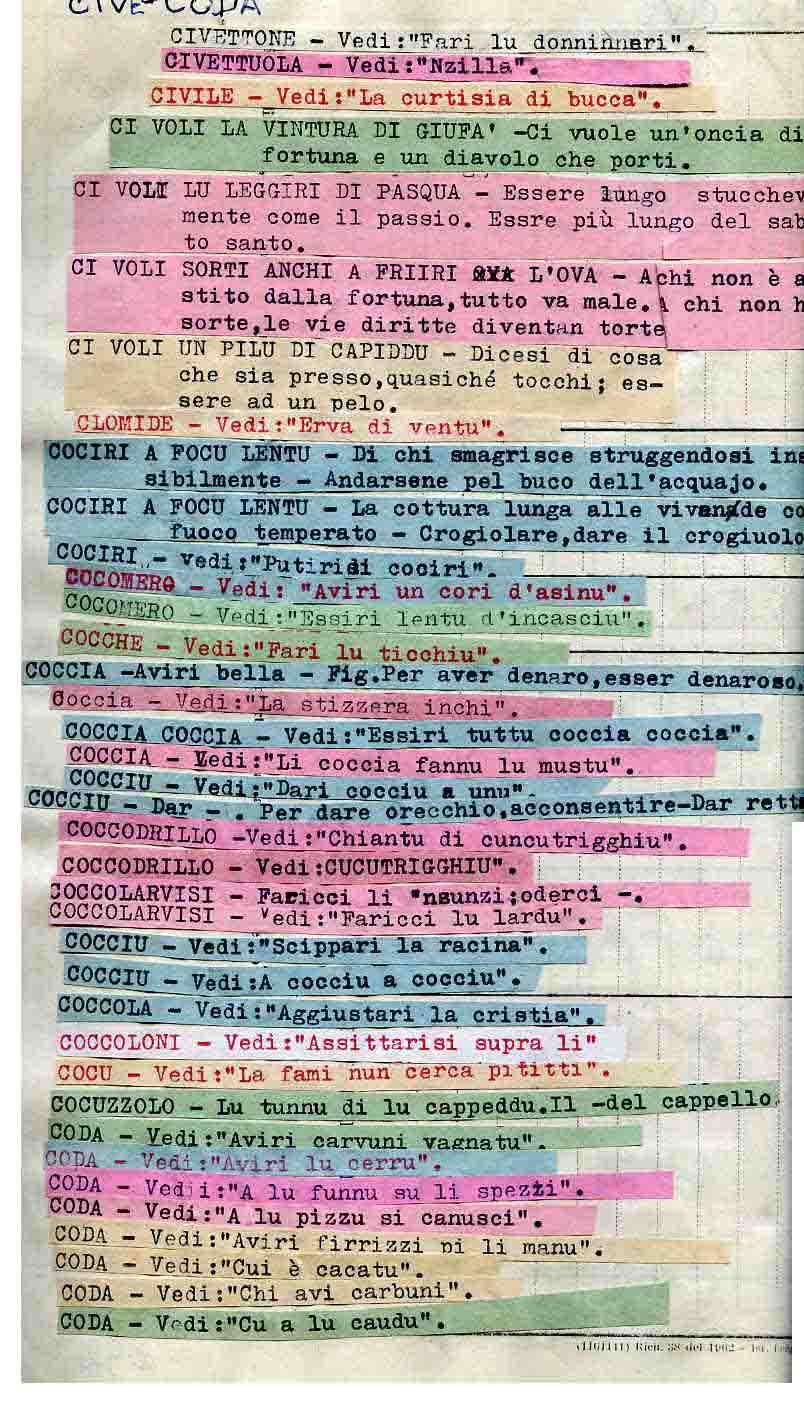 CIVE-CODA
CIVETTONE - Vedi:"Fari lu donninnari".
CIVETTUOLA - Vedi:"Nzilla".
CIVILE - Vedi:"La curtisia di bucca".
CI VOLI LA VINTURA DI GIUFA' -Ci vuole un'oncia di
fortuna e un diavolo che porti.
CI VOLI LU LEGGIRI DI PASQUA - Essere lungo stucchev
mente come il passio. Essre più lungo del sab
to santo.
CI VOLI SORTI ANCHI A FRIIRI L'OVA - Achi non è a
stito dalla fortuna,tutto va male. A chi non h
sorte,le vie diritte diventan torte
CI VOLI UN PILU DI CAPIDDU - Dicesi di cosa
che sia presso,quasiché tocchi; es-
sere ad un pelo.
CLOMIDE - Vedi:"Erva di ventu".
COCIRI A FOCU LENTU - Di chi smagrisce struggendosi ins
sibilmente - Andarsene pel buco dell'acquajo.
COCIRI A FOCU LENTU - La cottura lunga alle vivande co
fuoco temperato - Crogiolare,dare il crogiuolo
COCIRI - Vedi:"Putirisi cociri".
COCOMERO - Vedi: "Aviri un cori d'asinu".
COCOMERO - Vedi:"Essiri lentu d'incasciu".
COCCHE - Vedi:"Fari lu ticchiu".
COCCIA -Aviri bella - Fig.Per aver denaro,esser denaroso.
Coccia - Vedi:"La stizzera inchi".
COCCIA COCCIA - Vedi:"Essiri tuttu coccia coccia".
COCCIA - Vedi:"Li coccia fannu lu mustu".
COCCIU - Vedi:"Dari cocciu a unu".
COCCIU - Dar - . Per dare orecchio,acconsentire-Dar rett
COCCODRILLO -Vedi:"Chiantu di cuncutrigghiu".
COCCODRILLO - Vedi:CUCUTRIGGHIU".
COCCOLARVISI - Faricci li "nsunzi;oderci -.
COCCOLARVISI - Vedi:"Faricci lu lardu".
COCCIU - Vedi:"Scippari la racina".
COCCIU - Vedi:A cocciu a cocciu".
COCCOLA - Vedi:"Aggiustari la cristia".
COCCOLONI - Vedi:"Assittarisi supra li"
COCU - Vedi:"La fami nun cerca pititti".
COCUZZOLO - Lu tunnu di lu cappeddu.Il -del cappello.
CODA - Vedi:"Aviri carvuni vagnatu".
CODA - Vedi:"Aviri lu cerru".
CODA - Vedi:"A lu funnu su li spezzi".
CODA - Vedi:"A lu pizzu si canusci".
CODA - Vedi:"Aviri firrizzi pi li manu".
CODA - Vedi:"Cui è cacatu".
CODA - Vedi:"Chi avi carbuni".
CODA - Vedi:"Cu a lu caudu".
Rich. 38 del 1962 - Ist.